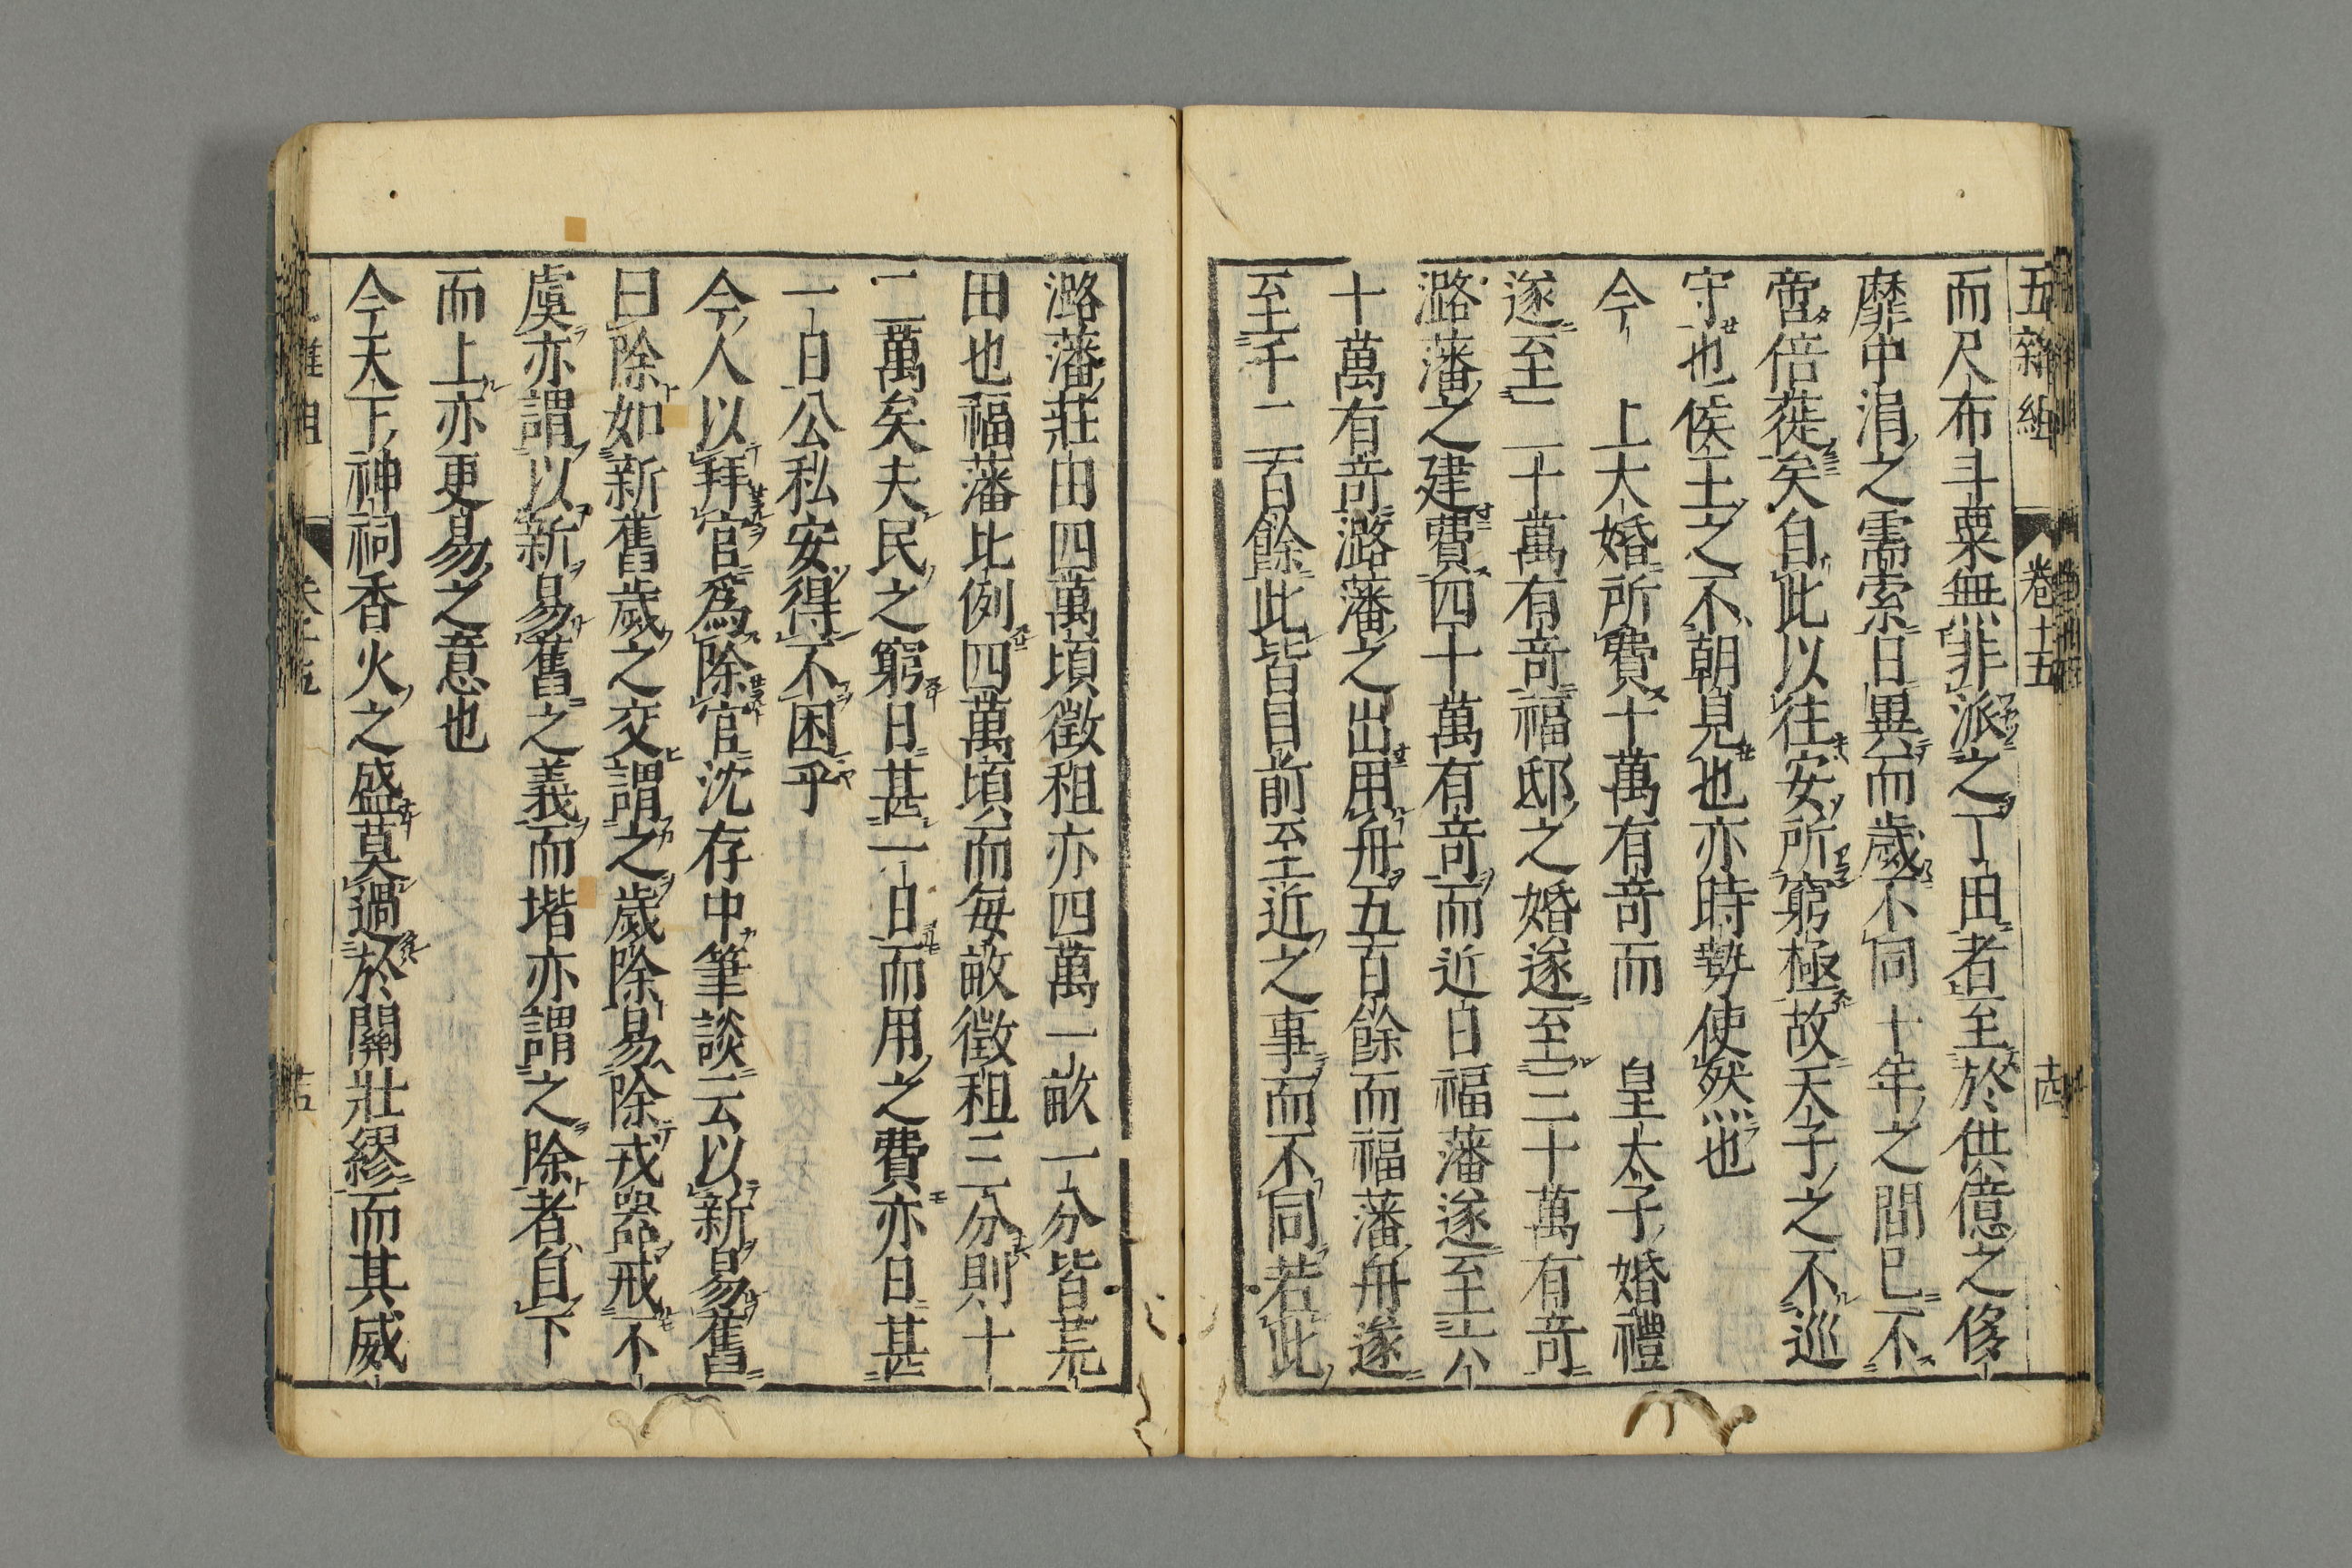 五雜組 卷十五 十四
而尺布斗粟無非派之丁田者至於供億之侈
靡中涓之需索日異而歲不同十年之間已不
啻倍蓰矣自此以往安所窮極故天子之不巡
守也侯王之不朝見也亦時勢使然也
今 上大婚所費十萬有奇而 皇太子婚禮
遂至二十萬有奇福邸之婚遂至三十萬有奇
潞藩之建費四十萬有奇而近日福藩遂至六
十萬有奇潞藩之出用舟五百餘而福藩舟遂
至千二百餘此皆目前至近之事而不同若此
潞藩莊田四萬頃徵租亦四萬一畝一分皆荒
田也福藩比例四萬頃而每畝徵租三分則十
二萬矣夫民之窮日甚一日而用之費亦日甚
一日公私安得不困乎
今人以拜官爲除官沈存中筆談云以新易舊
曰除如新舊歲之交謂之歲除易除戎器戒不
虞亦謂以新易舊之義而堦亦謂之除者自下
而上亦更易之意也
今天下神祠香火之盛莫過於關壯繆而其威